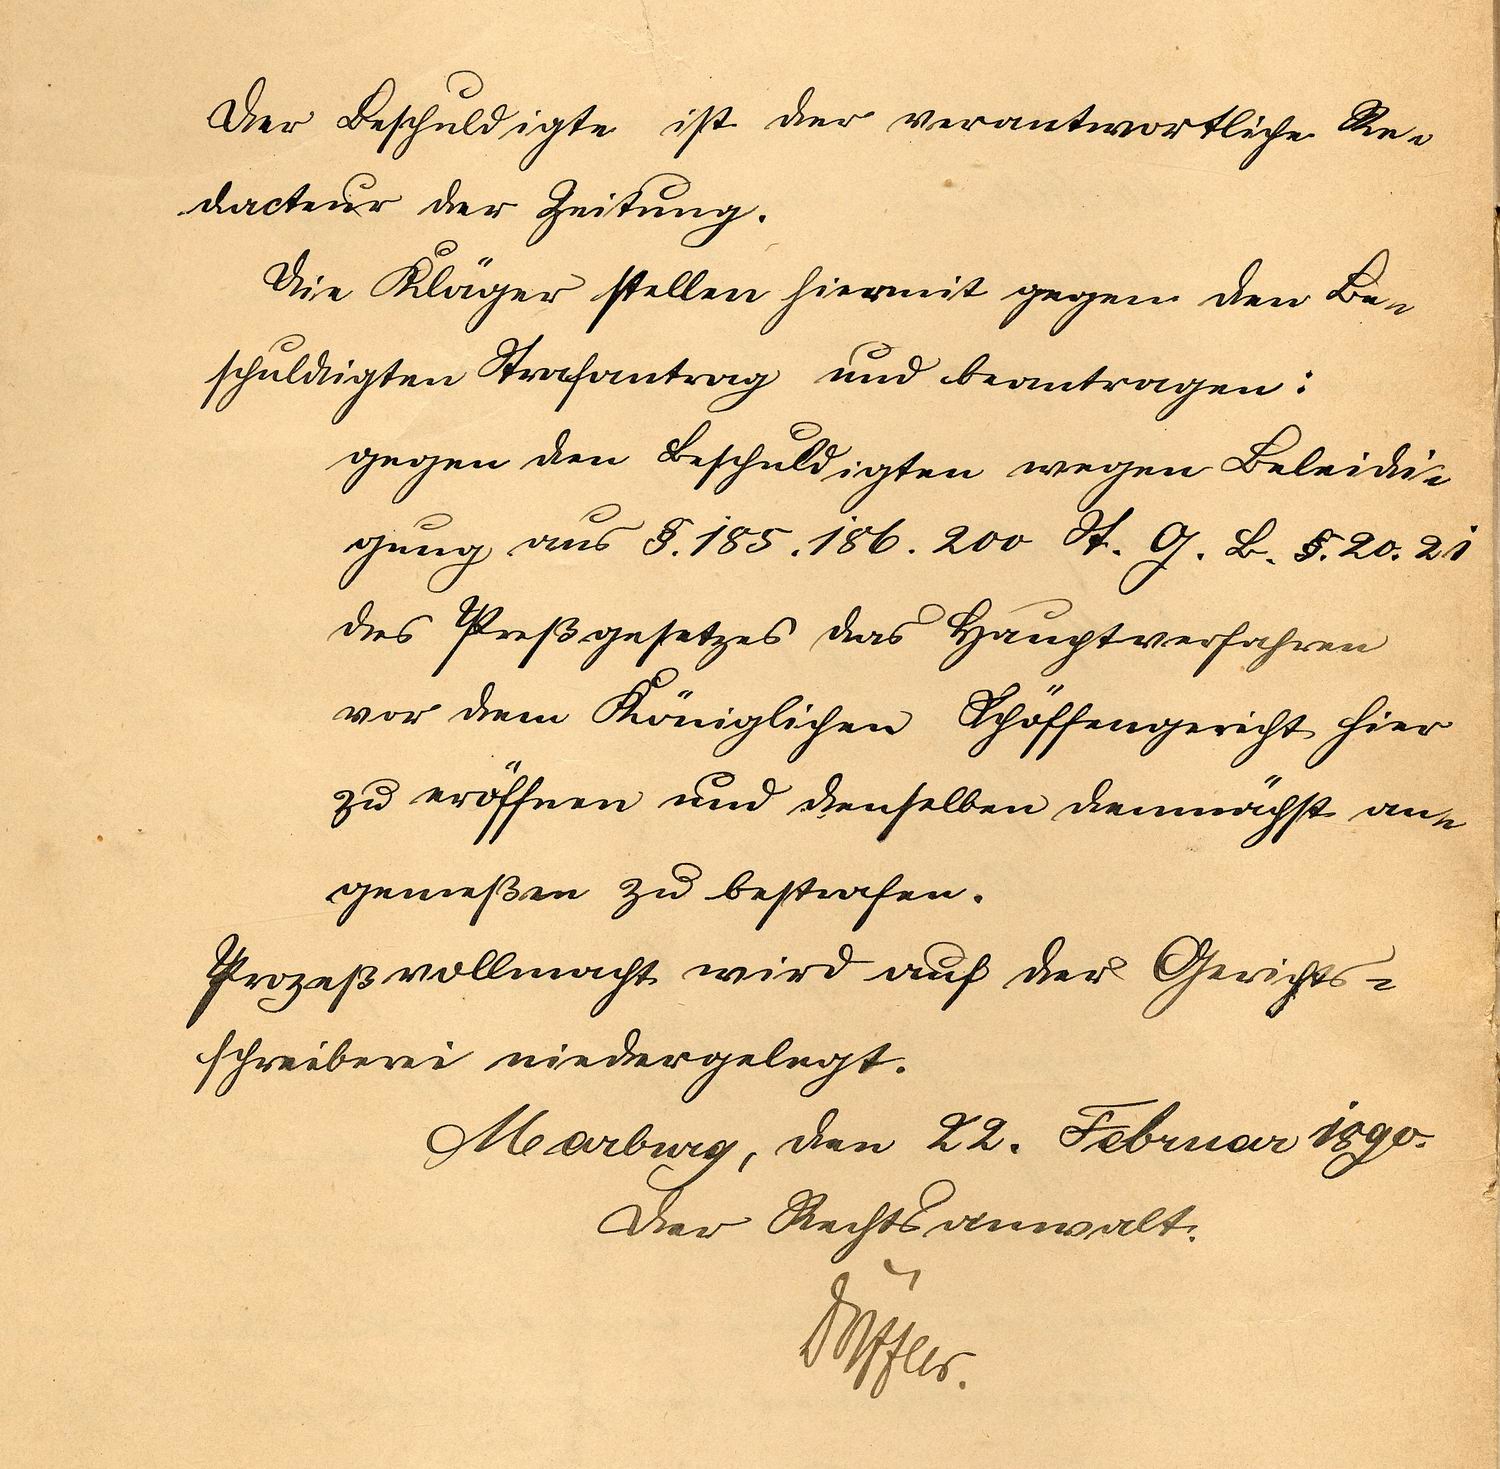 Der Beschuldigte ist der verantwortliche Re-
dacteur der Zeitung.
Die Kläger stellen hiermit gegen den Be-
schuldigten Strafantrag und beantragen:
gegen den Beschuldigten wegen Beleidi-
gung aus §. 185. 186. 200 St. G. B. §. 20. 21
des Preßgesetzes das Hauptverfahren
vor dem Königlichen Schöffengericht hier
zu eröffnen und denselben demnächst an-
gemeßen zu bestrafen.
Prozeßvollmacht wird auf der Gerichts-
schreiberei niedergelegt.
Marburg, den 22. Februar 1890.
Der Rechtsanwalt.